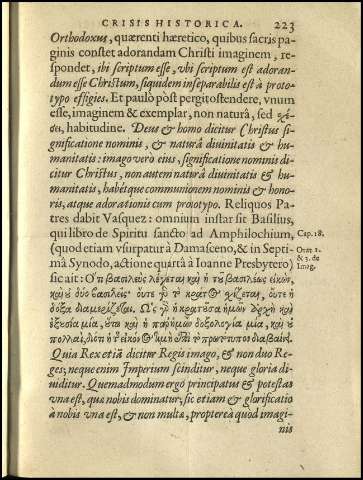 CRISIS HISTORICA. 223
Orthodoxus, quærenti hæretico, quibus sacris pa-
ginis constet adorandam Christi imaginem, re-
spondet, ibi scriptum esse, vbi scriptum est adoran-
dum esse Christum, siquidem inseparabilis est à proto-
typo effigies. Et paulò pòst pergit ostendere, vnum
esse, imaginem & exemplar, non naturâ, sed χέ-
σει, habitudine. Deus & homo dicitur Christus si-
gnificatione nominis, & naturâ diuinitatis & hu-
manitatis: imago verò eius, significatione nominis di-
citur Christus, non autem naturâ diuinitatis & hu-
manitatis, habétque communionem nominis & hono-
ris, atque adorationis cum prototypo. Reliquos Pa-
tres dabit Vasquez: omnium instar sit Basilius,
qui libro de Spiritu sancto ad Amphilochium, Cap. 18.
(quod etiam vsurpatur à Damasceno, & in Septi- Orat 1.
mâ Synodo, actione quartâ à Ioanne Presbytero) & 3. de
Imag.
sic ait: Ὅτι βασιλεὺς λέγεται καὶ ἡ τȣ͂ βασιλέως εἰκὼν,
καὶ ȣ̓ δύο βασιλεῖς· ȣ̓́τε γὸ τὸ κράτος χίζεται, ȣ̓́τε ἡ
δόξα διαμερίζεται. Ὡς γὸ ἡ κρατȣ͂σα ἡμῶν ἀρχὴ καὶ
ἐξȣσία μία, ȣ̔́τως καὶ ἡ παρ' ἡμῶν δοξολογία μία, καὶ ȣ̓
πολλαὶ, διότι ἡ τ͂ εἰκόνος τιμὴ ἐπὶ τὸ πρωτότυπον διαβαίνει.
Quia Rex etiā dicitur Regis imago, & non duo Re-
ges; neque enim Imperium scinditur, neque gloria di-
uiditur. Quemadmodum ergo principatus & potestas
vna est, quæ nobis dominatur; sic etiam & glorificatio
à nobis vna est, & non multæ, propterea quòd imagi-
nis